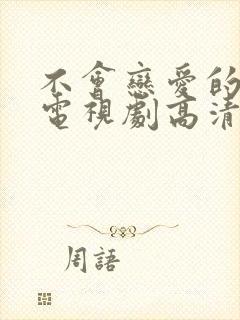 不會戀愛的
電視劇高清
周語